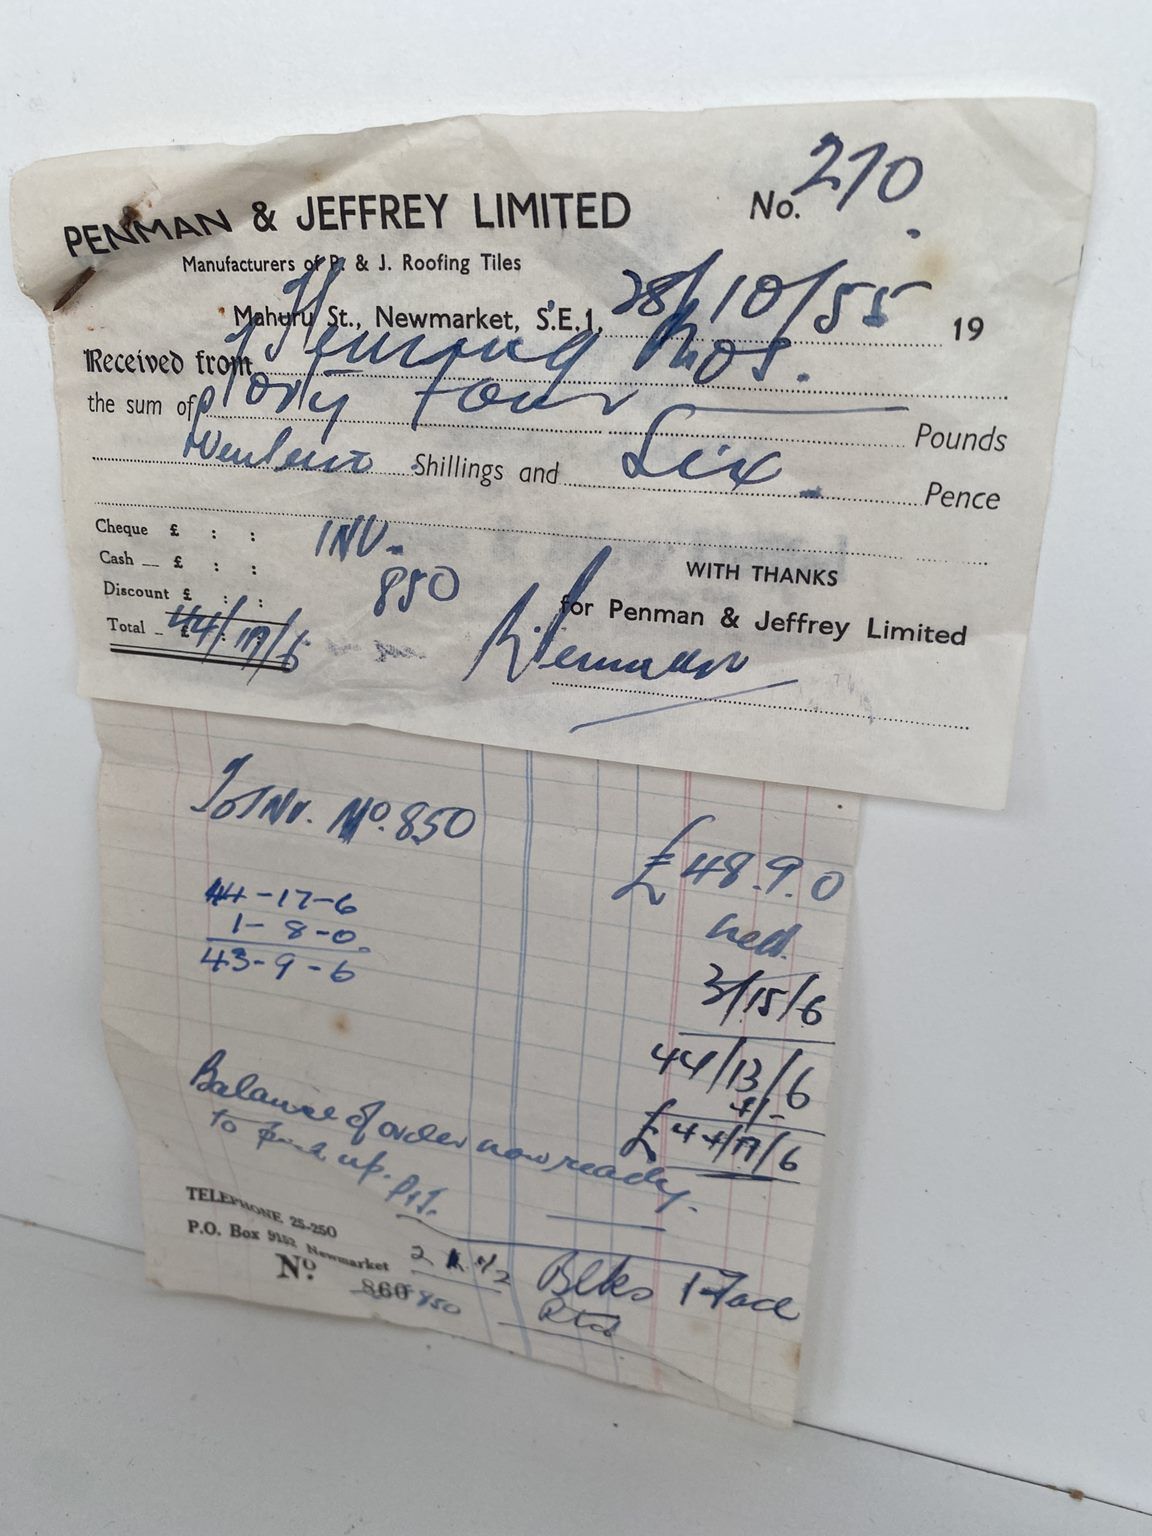 No. 270
PENMAN & JEFFREY LIMITED
Manufacturers of P. & J. Roofing Tiles
Mahuru St., Newmarket, S.E.1, 28/10/55 19
Received from Bros.
the sum of Forty Four Pounds
Shillings and Six Pence
Cheque £ : :
Cash £ : :
Discount £ : :
Total £ 44/17/6
INV.
850
WITH THANKS
for Penman & Jeffrey Limited
To INV. No. 850
£48.9.0
44-17-6
1-8-0
43-9-6
3/15/6
44/13/6
4/-
£44/17/6
Balance of order now ready
to pick up. P&J.
TELEPHONE 25-250
P.O. Box 9152, Newmarket
No. 860 850
2 1/2 Blks